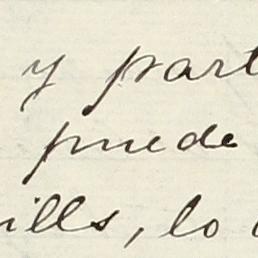 y part
puede
ills, lo